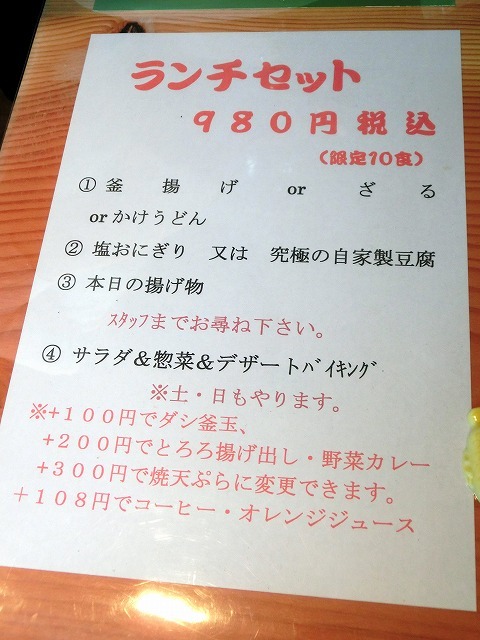 ランチセット
９８０円税込
（限定10食）
① 釜揚げ or ざる
or かけうどん
② 塩おにぎり　又は　究極の自家製豆腐
③ 本日の揚げ物
ｽﾀｯﾌまでお尋ね下さい。
④ サラダ＆惣菜＆デザートﾊﾞｲｷﾝｸﾞ
※土・日もやります。
※+１００円でダシ釜玉、
+２００円でとろろ揚げ出し・野菜カレー
+３００円で焼天ぷらに変更できます。
＋１０８円でコーヒー・オレンジジュース